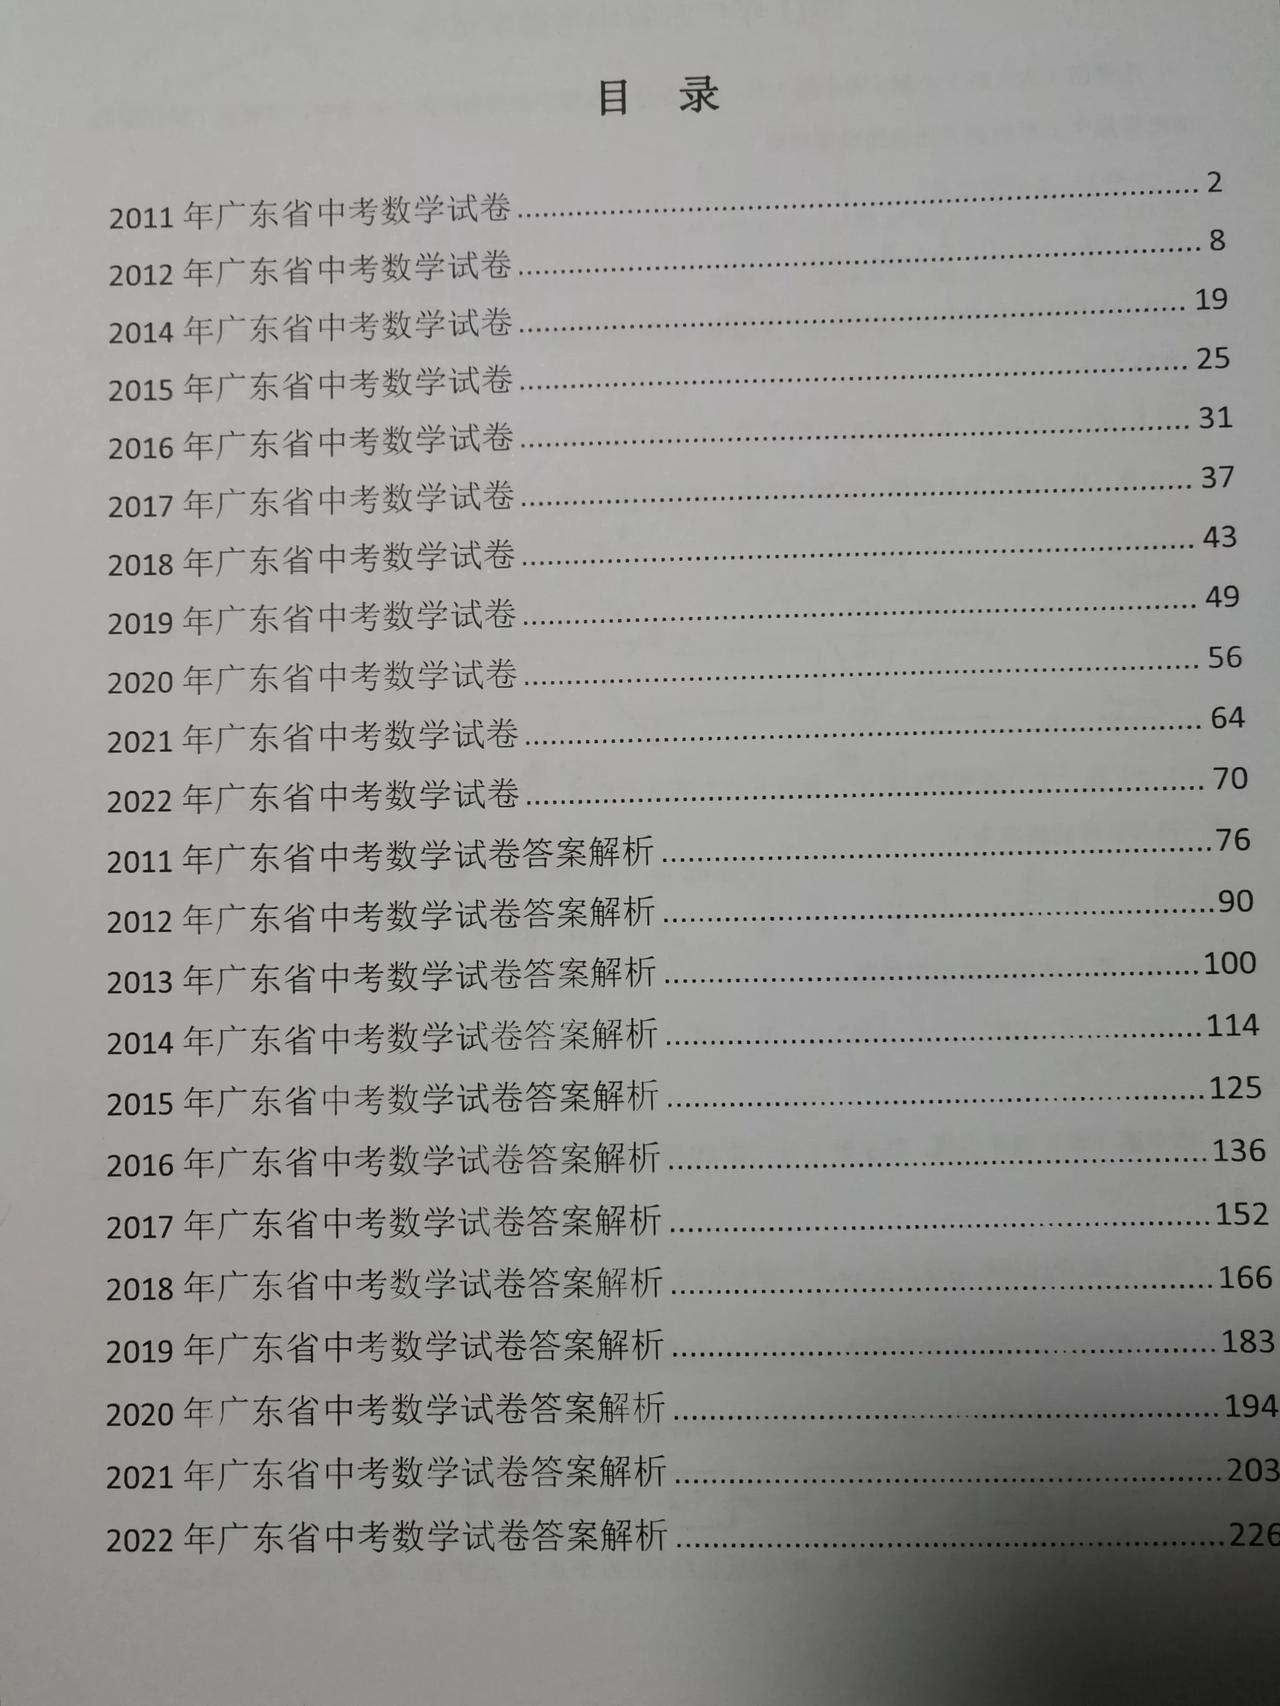 目 录
2011 年广东省中考数学试卷........................................2
2012 年广东省中考数学试卷........................................8
2014 年广东省中考数学试卷........................................19
2015 年广东省中考数学试卷........................................25
2016 年广东省中考数学试卷........................................31
2017 年广东省中考数学试卷........................................37
2018 年广东省中考数学试卷........................................43
2019 年广东省中考数学试卷........................................49
2020 年广东省中考数学试卷........................................56
2021 年广东省中考数学试卷........................................64
2022 年广东省中考数学试卷........................................70
2011 年广东省中考数学试卷答案解析................................76
2012 年广东省中考数学试卷答案解析................................90
2013 年广东省中考数学试卷答案解析................................100
2014 年广东省中考数学试卷答案解析................................114
2015 年广东省中考数学试卷答案解析................................125
2016 年广东省中考数学试卷答案解析................................136
2017 年广东省中考数学试卷答案解析................................152
2018 年广东省中考数学试卷答案解析................................166
2019 年广东省中考数学试卷答案解析................................183
2020 年广东省中考数学试卷答案解析................................194
2021 年广东省中考数学试卷答案解析................................203
2022 年广东省中考数学试卷答案解析................................226